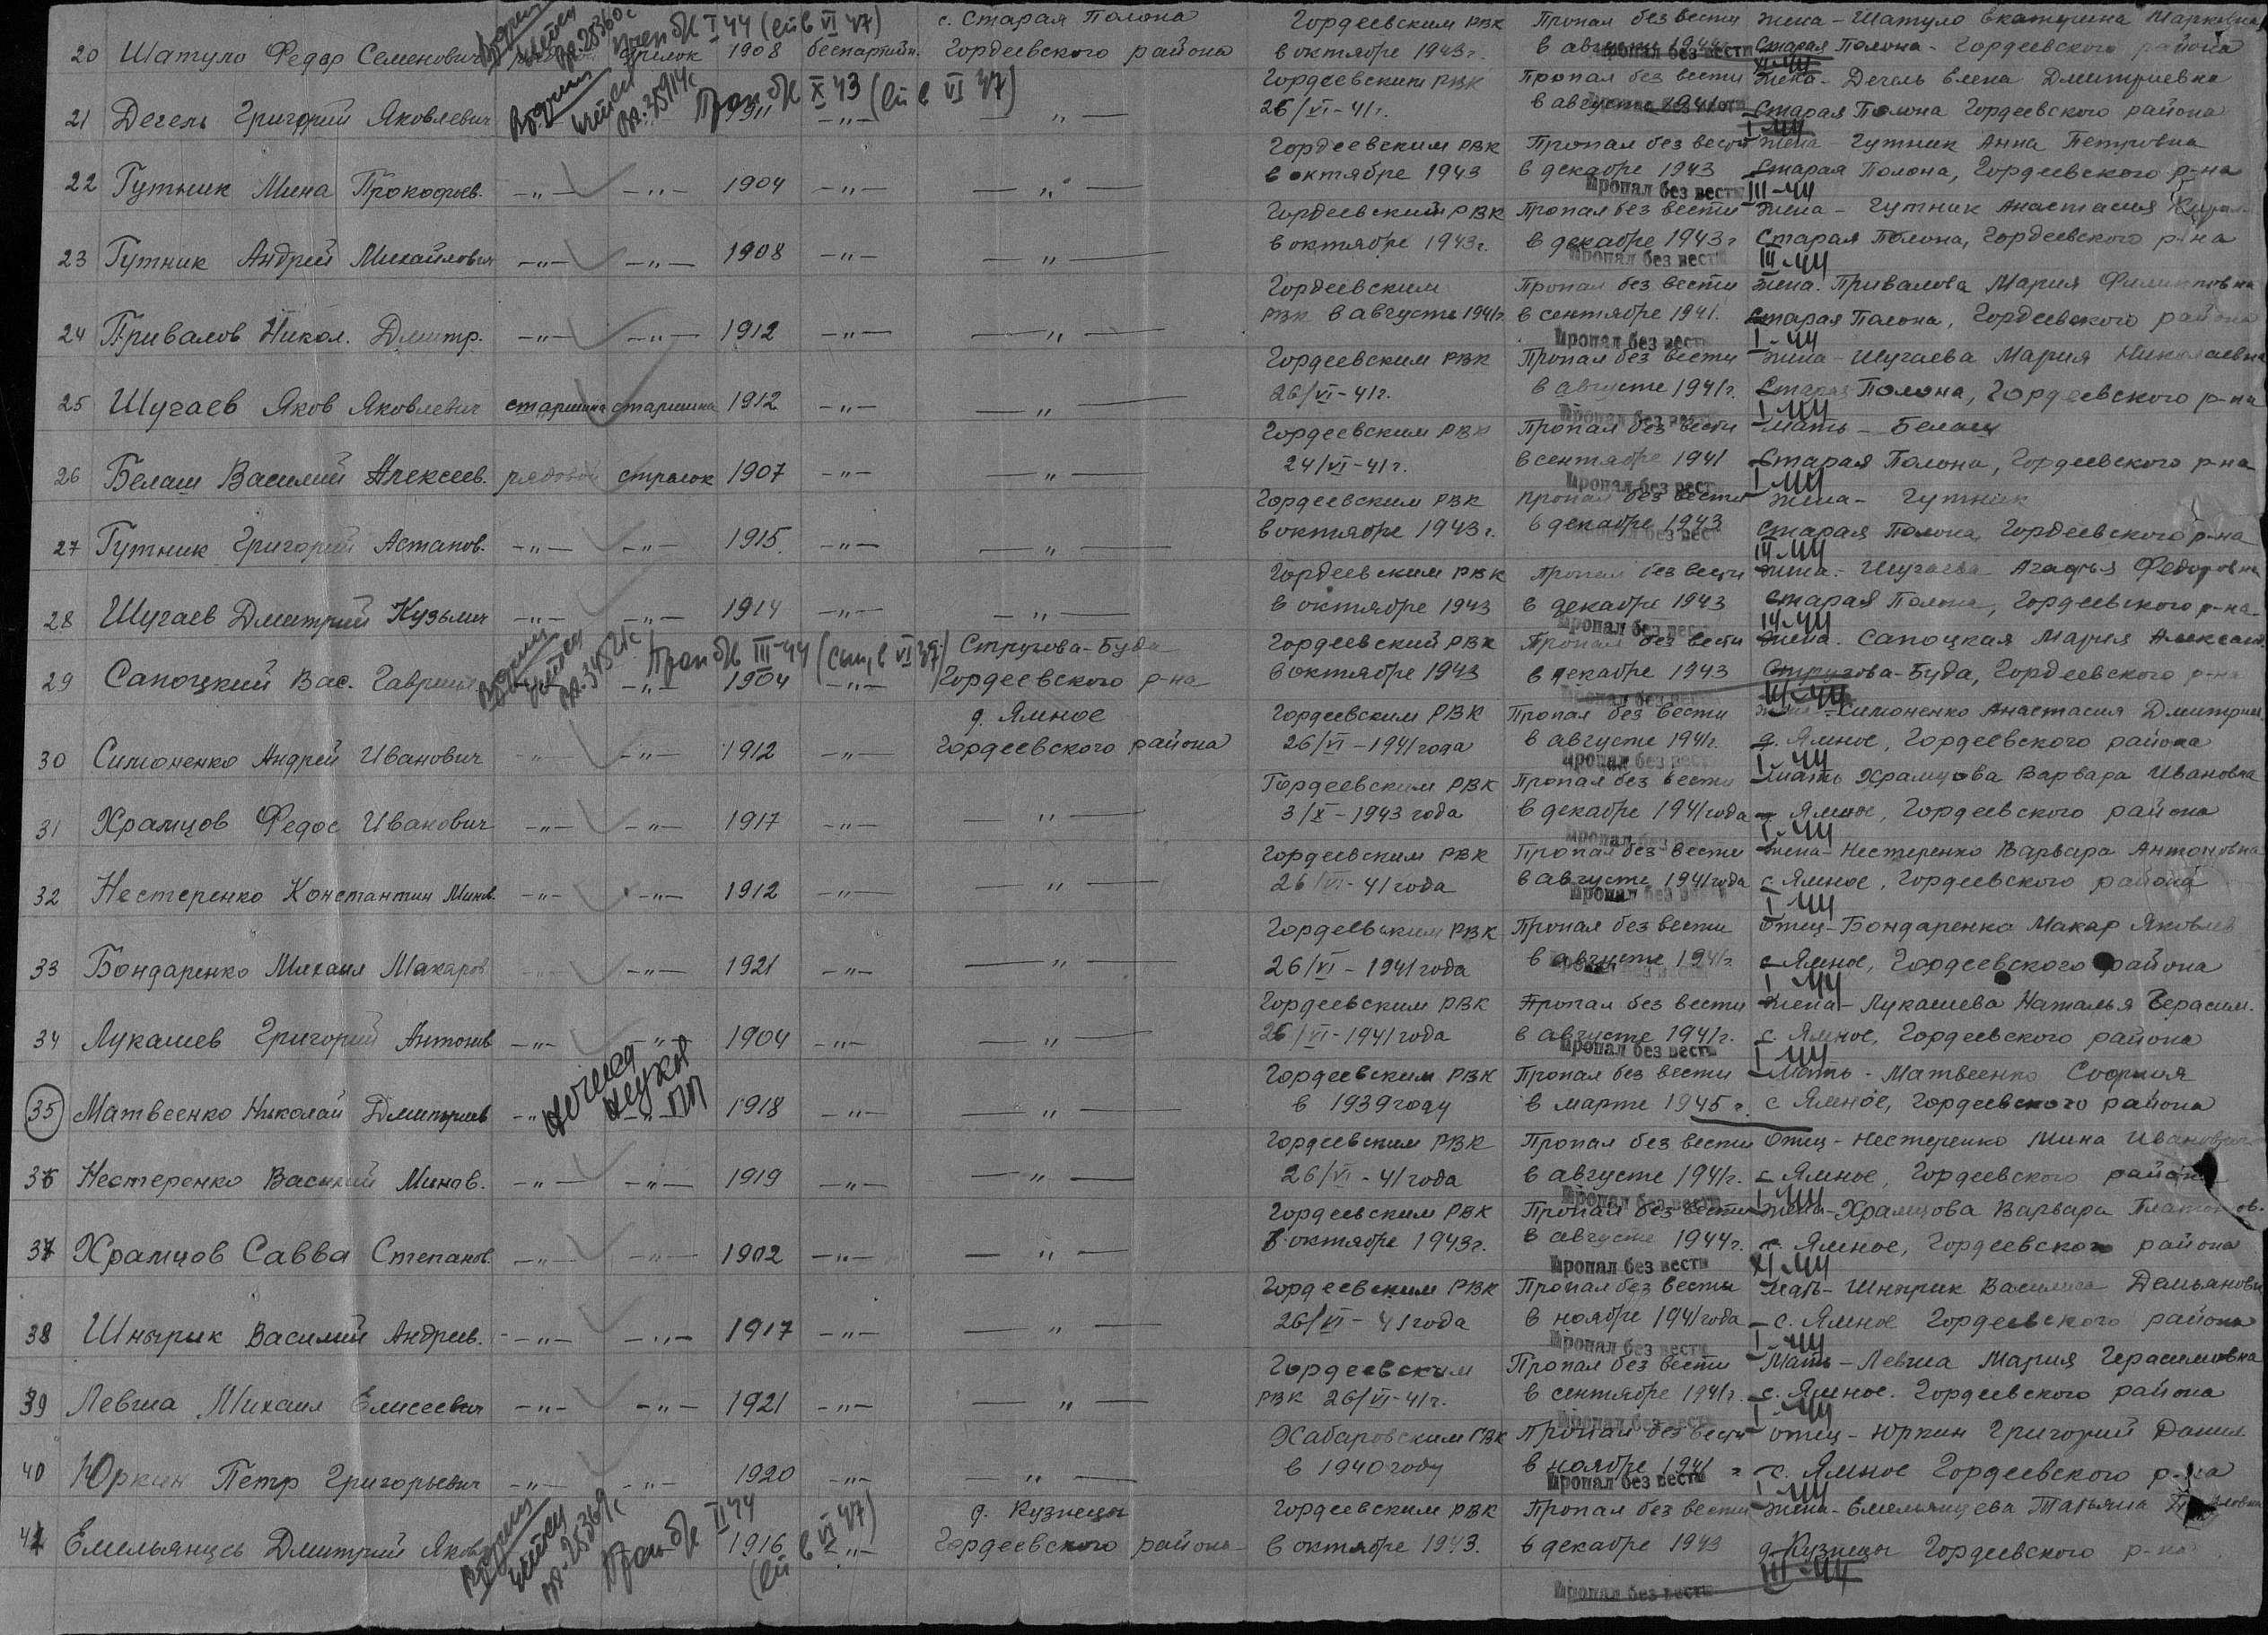 20 Шатуло Федор Семенович стрелок 1908 беспартийн. с. Старая Полона Гордеевского района Гордеевским РВК в октябре 1943г. Пропал без вести Жена - Шатуло Екатерина Марковна
Старая Полона - Гордеевского района
Пропал б/в I 44 (сп в VI 47)
Пропал без вести
XI-44
21 Дегель Григорий Яковлевич 1911 -"- — " — Гордеевским РВК 26/VI-41г. Пропал без вести в августе 1941 Жена - Дегель Елена Дмитриевна
Старая Полона Гордеевского района
Проп б/в X 43 (сп в VI 47)
I-44
22 Гутник Мина Прокофьев. -"- -"- 1904 -"- — " — Гордеевским РВК в октябре 1943 Пропал без вести в декабре 1943 Жена - Гутник Анна Петровна
Старая Полона, Гордеевского р-на
Пропал без вести
III-44
23 Гутник Андрей Михайлович -"- -"- 1908 -"- — " — Гордеевским РВК в октябре 1943г. Пропал без вести в декабре 1943г Жена - Гутник Анастасия
Старая Полона, Гордеевского р-на
Пропал без вести
III-44
24 Привалов Никол. Дмитр. -"- -"- 1912 -"- — " — Гордеевским РВК в августе 1941г. Пропал без вести в сентябре 1941. Жена. Привалова Мария Филипповна
Старая Полона, Гордеевского района
Пропал без вести
I-44
25 Шугаев Яков Яковлевич старшина старшина 1912 -"- — " — Гордеевским РВК 26/VI-41г. Пропал без вести в августе 1941г. Жена - Шугаева Мария Николаевна
Старая Полона, Гордеевского р-на
Пропал без вести
I-44
26 Белаш Василий Алексеев. рядовой стрелок 1907 -"- — " — Гордеевским РВК 24/VI-41г. Пропал без вести в сентябре 1941 Мать - Белаш
Старая Полона, Гордеевского р-на
Пропал без вести
I-44
27 Гутник Григорий Астапов. -"- -"- 1915. -"- — " — Гордеевским РВК в октябре 1943г. Пропал без вести в декабре 1943 Жена - Гутник
Старая Полона Гордеевского р-на
Пропал без вести
III-44
28 Шугаев Дмитрий Кузьмич -"- -"- 1914 -"- — " — Гордеевским РВК в октябре 1943 Пропал без вести в декабре 1943 Жена. Шугаева Агафья Федоровна
Старая Полона, Гордеевского р-на
Пропал без вести
III-44
29 Сапоцкий Вас. Гаврил. -"- 1904 -"- Стругова-Буда Гордеевского р-на Гордеевский РВК в октябре 1943 Пропал без вести в декабре 1943 Жена. Сапоцкая Мария Алексан.
Стругова-Буда, Гордеевского р-на
Проп б/в III-44
Пропал без вести
III-44
30 Симоненко Андрей Иванович -"- -"- 1912 -"- д. Ямное Гордеевского района Гордеевским РВК 26/VI-1941 года Пропал без вести в августе 1941г. Жена - Симоненко Анастасия Дмитриев
д. Ямное, Гордеевского района
Пропал без вести
I-44
31 Храмцов Федос Иванович -"- -"- 1917 -"- — " — Гордеевским РВК 3/X-1943 года Пропал без вести в декабре 1941 года Мать Храмцова Варвара Ивановна
д. Ямное, Гордеевского района
Пропал без вести
I-44
32 Нестеренко Константин Минов. -"- -"- 1912 -"- — " — Гордеевским РВК 26/VI-41 года Пропал без вести в августе 1941 года Жена - Нестеренко Варвара Антоновна
с. Ямное, Гордеевского района
Пропал без вести
I-44
33 Бондаренко Михаил Макаров -"- 1921 -"- — " — Гордеевским РВК 26/VI-1941 года Пропал без вести в августе 1941г. Отец - Бондаренко Макар Яковлев
с. Ямное, Гордеевского района
I 44
34 Лукашев Григорий Антонов -"- -"- 1904 -"- — " — Гордеевским РВК 26/VI-1941 года Пропал без вести в августе 1941г. Жена - Лукашева Наталья Герасим.
с. Ямное, Гордеевского района
Пропал без вести
I 44
35 Матвеенко Николай Дмитриев -"- -"- 1918 -"- — " — Гордеевским РВК в 1939 году Пропал без вести в марте 1945г. Мать - Матвеенко София
с Ямное, Гордеевского района
36 Нестеренко Василий Минов. -"- -"- 1919 -"- — " — Гордеевским РВК 26/VI-41 года Пропал без вести в августе 1941г. Отец - Нестеренко Мина Иванович
с Ямное, Гордеевского района
Пропал без вести
I 44
37 Храмцов Савва Степанов. -"- -"- 1902 -"- — " — Гордеевским РВК В октябре 1943г. Пропал без вести в августе 1944г. Жена - Храмцова Варвара Платонов.
с. Ямное, Гордеевского района
Пропал без вести
XI-44
38 Шнырик Василий Андреев. -"- -"- 1917 -"- — " — Гордеевским РВК 26/VI-41 года Пропал без вести в ноябре 1941 года Мать - Шнырик Василиса Демьяновн
с. Ямное Гордеевского района
Пропал без вести
I 44
39 Левша Михаил Елисеевич -"- -"- 1921 -"- — " — Гордеевским РВК 26/VI-41г. Пропал без вести в сентябре 1941г. Мать - Левша Мария Герасимовна
с. Ямное. Гордеевского района
Пропал без вести
I 44
40 Юркин Петр Григорьевич -"- -"- 1920 -"- — " — Хабаровским ГВК в 1940 году Пропал без вести в ноябре 1941 г Отец - Юркин Григорий Данил
с. Ямное Гордеевского р-на
Пропал без вести
I 44
41 Емельянцев Дмитрий Яков. 1916 -"- д. Кузнецы Гордеевского района Гордеевским РВК в октябре 1943. Пропал без вести в декабре 1943 Жена - Емельянцева Татьяна
д. Кузнецы Гордеевского р-на
Проп б/в II 44 (сп в VI 47)
Пропал без вести
III-44